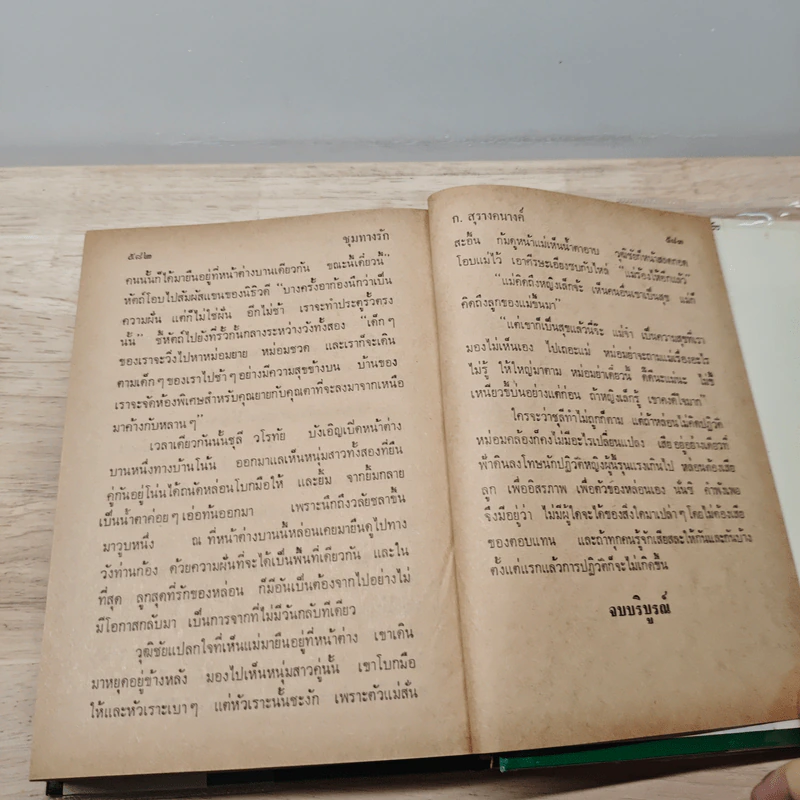 ๕๗๒ ชุมทางรัก
คนนั้นก็ได้มายืนอยู่ที่หน้าต่างบานเดียวกัน ขณะนี้เดี๋ยวนี้"
หัตถ์โอบไปสัมผัสแขนของนิธิวดี "บางครั้งอาก้องนึกว่าเป็น
ความฝัน แต่ก็ไม่ใช่ฝัน อีกไม่ช้า เราจะทำประตูรั้วตรง
นั้น" ชี้หัตถ์ไปยังที่รั้วกั้นกลางระหว่างวังทั้งสอง "เด็กๆ
ของเราจะวิ่งไปหาหม่อมยาย หม่อมชวด และเราก็จะเดิน
ตามเด็กๆ ของเราไปช้าๆ อย่างมีความสุขข้างบน บ้านของ
เราจะจัดห้องพิเศษสำหรับคุณยายกับคุณตาที่จะลงมาจากเหนือ
มาค้างกับหลานๆ"
เวลาเดียวกันนั้นชุลี วโรทัย บังเอิญเปิดหน้าต่าง
บานหนึ่งทางบ้านโน้น ออกมาแลเห็นหนุ่มสาวทั้งสองที่ยืน
คู่กันอยู่โน่นได้ถนัดหล่อนโบกมือให้ และยิ้ม จากยิ้มกลาย
เป็นน้ำตาค่อยๆ เอ่อท้นออกมา เพราะนึกถึงวลัยชลาขึ้น
มาวูบหนึ่ง ณ ที่หน้าต่างบานนี้หล่อนเคยมายืนดูไปทาง
วังท่านก้อง ด้วยความฝันที่จะได้เป็นพื้นที่เดียวกัน และใน
ที่สุด ลูกสุดที่รักของหล่อน ก็มีอันเป็นต้องจากไปอย่างไม่
มีโอกาสกลับมา เป็นการจากที่ไม่มีวันกลับทีเดียว
วุฒิชัยแปลกใจที่เห็นแม่มายืนอยู่ที่หน้าต่าง เขาเดิน
มาหยุดอยู่ข้างหลัง มองไปเห็นหนุ่มสาวคู่นั้น เขาโบกมือ
ให้และหัวเราะเบาๆ แต่หัวเราะนั้นชะงัก เพราะตัวแม่สั่น
ก. สุรางคนางค์ ๕๗๓
สะอื้น ก้มดูหน้าแม่เห็นน้ำตาอาบ วุฒิชัยก็หน้าสลดกอด
โอบแม่ไว้ เอาศีรษะเอียงซบกับไหล่ "แม่ร้องไห้อีกแล้ว"
"แม่คิดถึงหญิงเล็กจ้ะ เห็นคนอื่นเขาเป็นสุข แม่ก็
คิดถึงลูกของแม่ขึ้นมา"
"แต่เขาก็เป็นสุขแล้วนี่จ๊ะ แม่จ๋า เป็นความสุขที่เรา
มองไม่เห็นเอง ไปเถอะแม่ หม่อมย่าจะถามแม่เรื่องอะไร
ไม่รู้ ให้ใหญ่มาตาม หม่อมย่าเดี๋ยวนี้ ดีดีนะแม่นะ ไม่ขี้
เหนียวขี้บ่นอย่างแต่ก่อน ถ้าหญิงเล็กรู้ เขาคงดีใจมาก"
ใครจะว่าชุลีทำไม่ถูกก็ตาม แต่ถ้าหล่อนไม่คิดปฏิวัติ
หม่อมคล้องก็คงไม่มีอะไรเปลี่ยนแปลง เสียอยู่อย่างเดียวที่
ฟ้าดินลงโทษนักปฏิวัติหญิงผู้นี้รุนแรงเกินไป หล่อนต้องเสีย
ลูก เพื่ออิสรภาพ เพื่อตัวของหล่อนเอง นั่นซิ คำพังเพย
จึงมีอยู่ว่า ไม่มีผู้ใดจะได้ของสิ่งใดมาเปล่าๆ โดยไม่ต้องเสีย
ของตอบแทน และถ้าทุกคนรู้จักเสียสละให้กันและกันบ้าง
ตั้งแต่แรกแล้วการปฏิวัติก็จะไม่เกิดขึ้น
จบบริบูรณ์